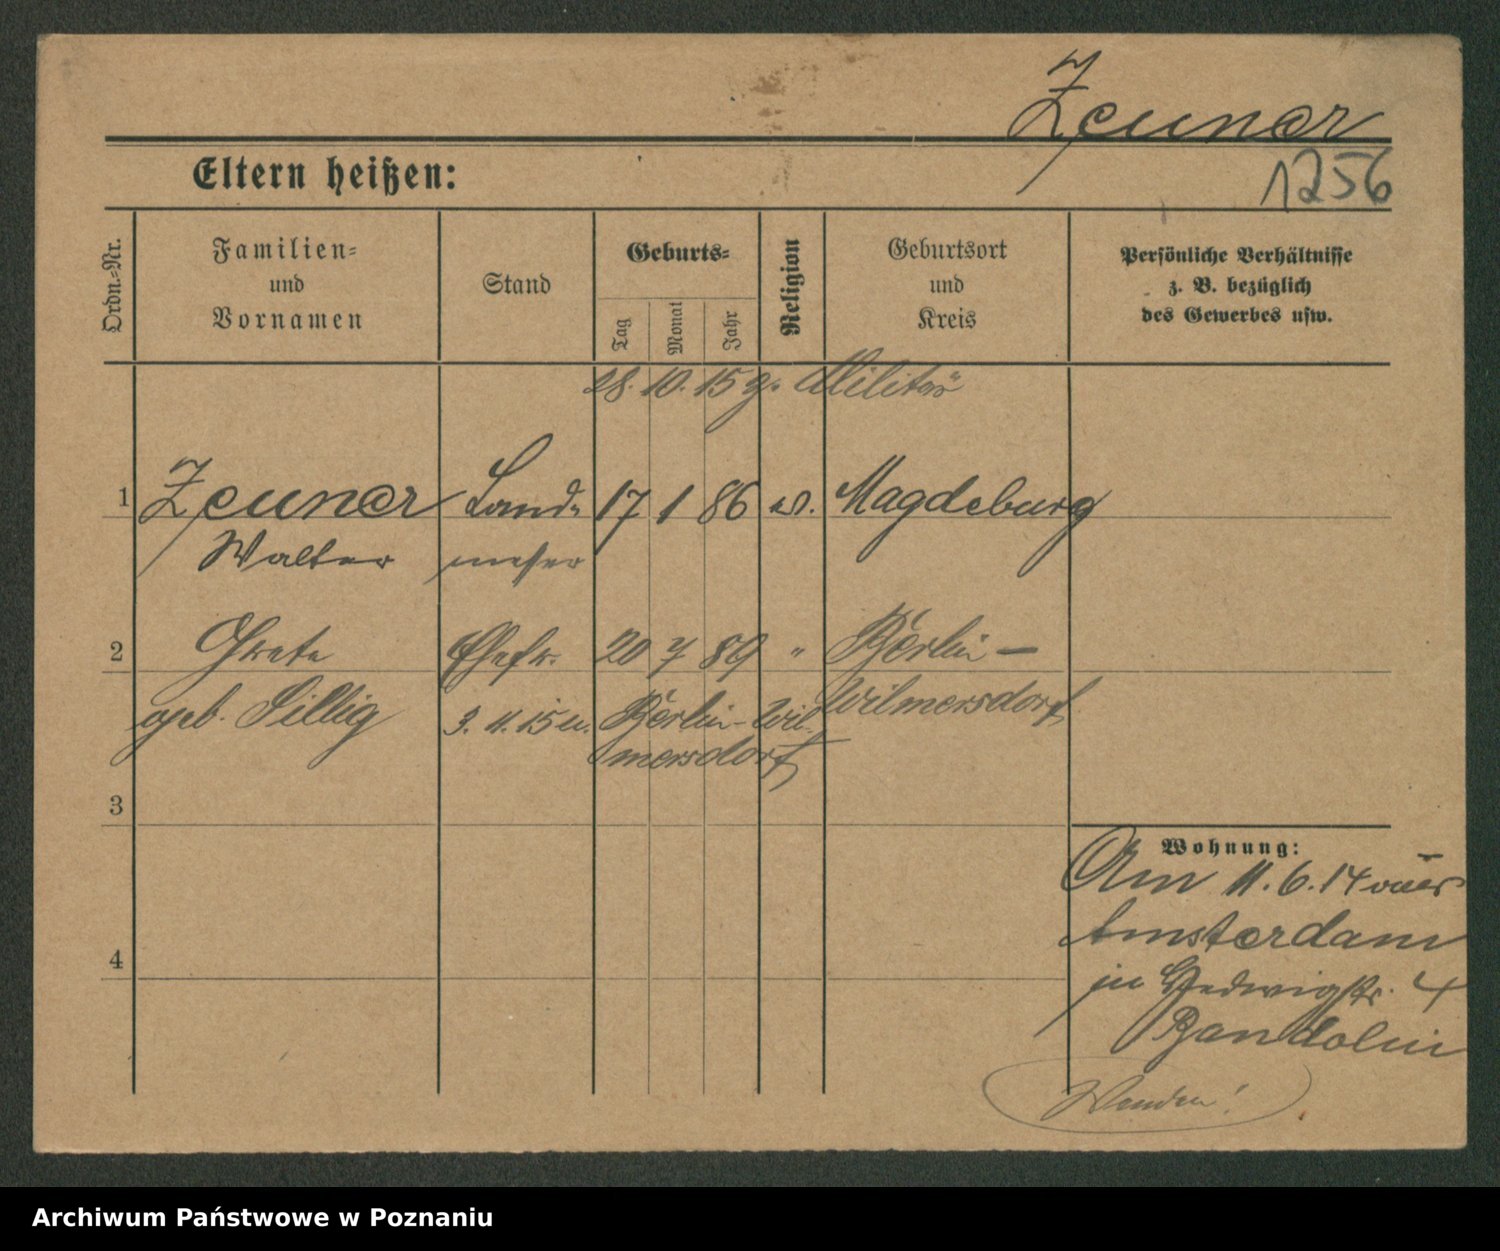 Zeuner
Eltern heißen:
1256
Ordn.-Nr.
Familien-
und
Vornamen
Stand
Geburts-
Tag
Monat
Jahr
Religion
Geburtsort
und
Kreis
Persönliche Verhältnisse
z. B. bezüglich
des Gewerbes usw.
28. 10. 15 z. Militär
1 Zeuner Land- 17 1 86 ev. Magdeburg
Walter messer
2 Grete Ehefr. 20 7 89 " Berlin-
Wilmersdorf
geb. Sillig 3. 11. 15 n. Berlin-Wil-
mersdorf
3
Wohnung:
Am 11.6.14 von
Amsterdam
4
in Hedwigstr. 4
Bandolin
Wenden!
Archiwum Państwowe w Poznaniu